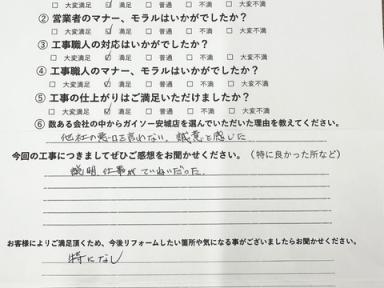 □ 大変満足 ☑ 満足 □ 普通 □ 不満 □ 大変不満
② 営業者のマナー、モラルはいかがでしたか？
□ 大変満足 ☑ 満足 □ 普通 □ 不満 □ 大変不満
③ 工事職人の対応はいかがでしたか？
□ 大変満足 ☑ 満足 □ 普通 □ 不満 □ 大変不満
④ 工事職人のマナー、モラルはいかがでしたか？
□ 大変満足 ☑ 満足 □ 普通 □ 不満 □ 大変不満
⑤ 工事の仕上がりはご満足いただけましたか？
□ 大変満足 ☑ 満足 □ 普通 □ 不満 □ 大変不満
⑥ 数ある会社の中からガイソー安城店を選んでいただいた理由を教えてください。
他社の悪口を言わない、誠意を感じた
今回の工事につきましてぜひご感想をお聞かせください。（特に良かった所など）
説明、仕事がていねいだった。
お客様によりご満足頂くため、今後リフォームしたい箇所や気になる事がございましたらお聞かせください。
特になし